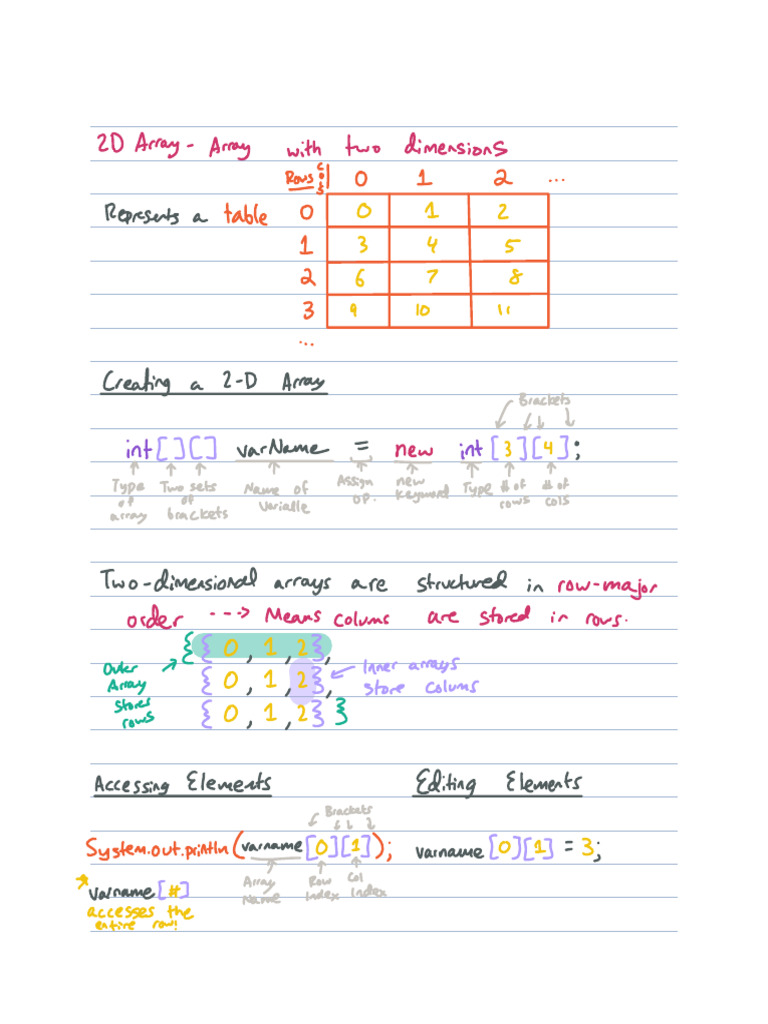 2D Array - Array with two dimensions
Rows Cols 0 1 2 ...
Represents a table 0 0 1 2
1 3 4 5
2 6 7 8
3 9 10 11
...
Creating a 2-D Array
Brackets
int[][] varName = new int[3][4];
Type of array
Two sets of brackets
Name of Variable
Assign op.
new keyword
Type
# of rows
# of cols
Two-dimensional arrays are structured in row-major
order ---> Means colums are stored in rows.
{ { 0, 1, 2 },
{ 0, 1, 2 },
{ 0, 1, 2 } }
Outer Array stores rows
Inner arrays store colums
Accessing Elements
Editing Elements
Brackets
System.out.println(varname[0][1]);
varname[0][1] = 3;
Array Name
Row Index
Col Index
varname[#]
accesses the
entire row!